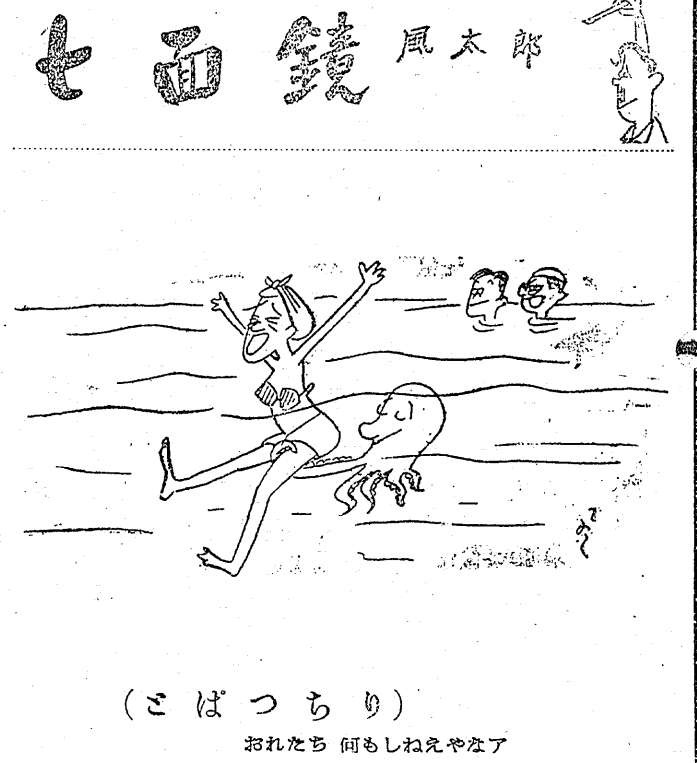 七面鏡 風太郎
(とばつちり)
おれたち 何もしねえやなア